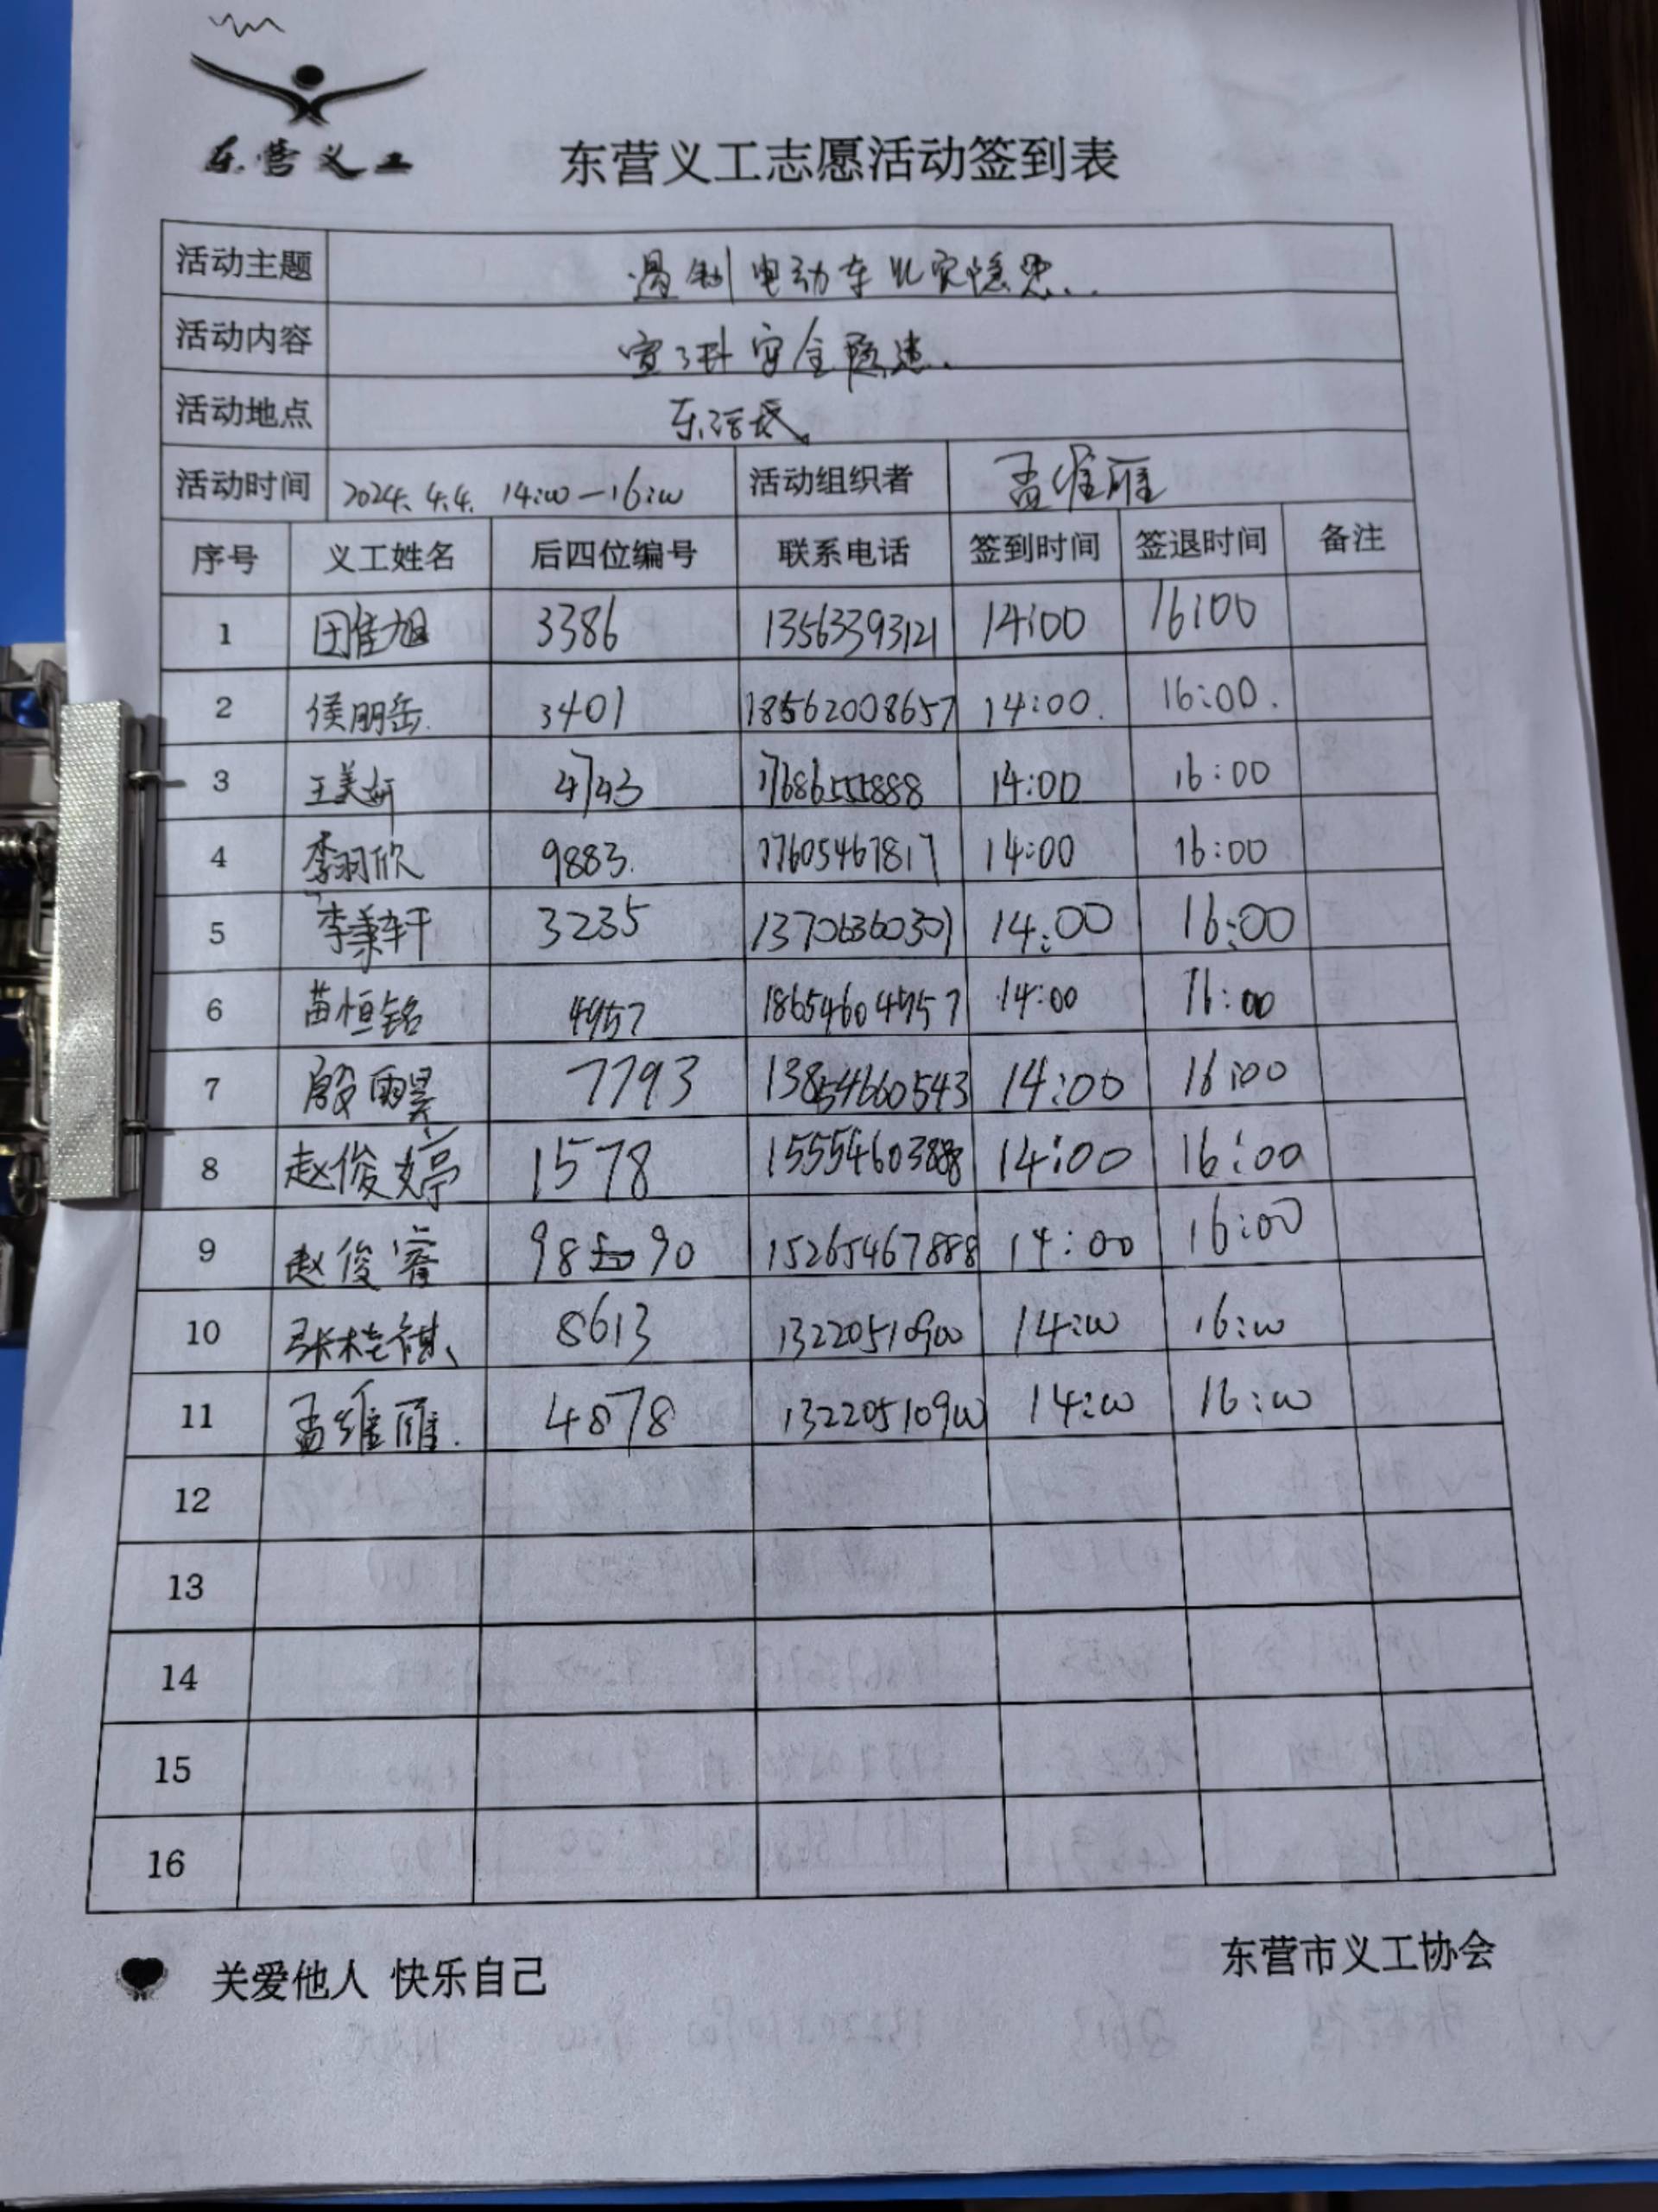 东营义工
东营义工志愿活动签到表
活动主题 遏制电动车火灾隐患.
活动内容 宣讲安全隐患.
活动地点
活动时间 2024.4.4. 14:00—16:00 活动组织者 孟维雁
序号 义工姓名 后四位编号 联系电话 签到时间 签退时间 备注
1 田隹旭 3386 13563393121 14:00 16:00
2 侯朋岳. 3401 18562008657 14:00. 16:00.
3 王美妍 4743 17686555888 14:00 16:00
4 李羽欣 9883. 17605467817 14:00 16:00
5 李秉轩 3235 13706360301 14:00 16:00
6 苗恒铭 4957 18654604957 14:00 16:00
7 殷雨昊 7793 13854660543 14:00 16:00
8 赵俊婷 1578 15554603888 14:00 16:00
9 赵俊睿 98 90 15265467888 14:00 16:00
10 张桂祺、 8613 13220510900 14:00 16:00
11 孟维雁. 4878 13220510900 14:00 16:00
12
13
14
15
16
关爱他人 快乐自己
东营市义工协会